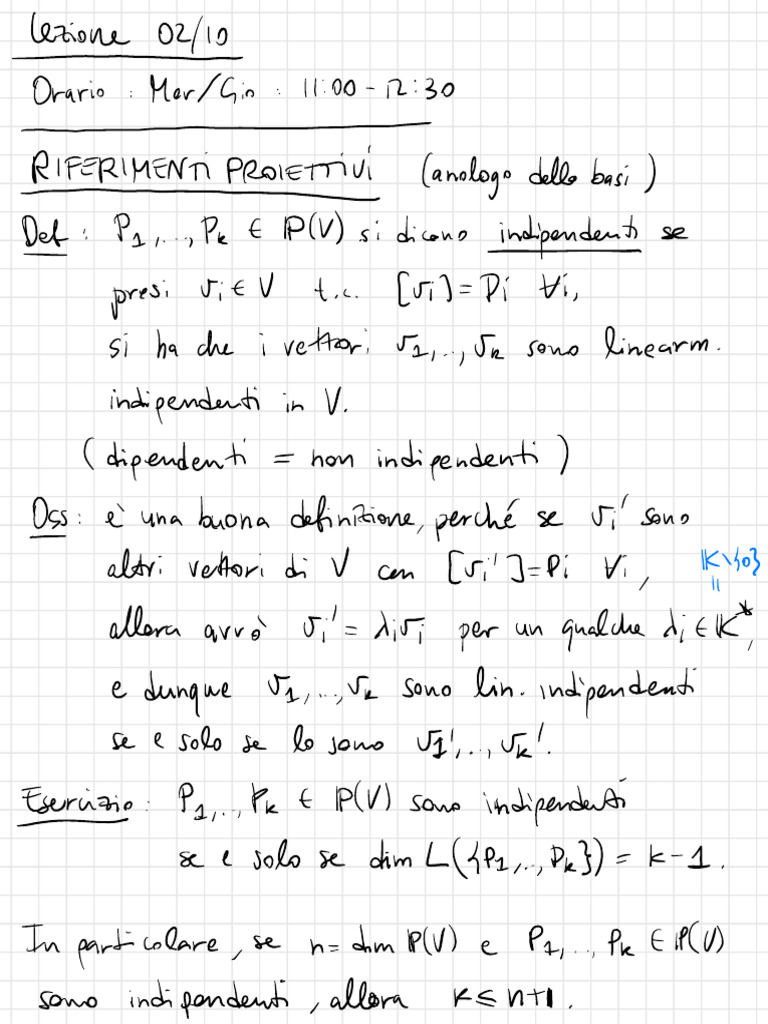 Lezione 02/10
Orario : Mer/Gio : 11:00 - 12:30
RIFERIMENTI PROIETTIVI (analogo delle basi)
Def : P₁,..,Pₖ ∈ ℙ(V) si dicono indipendenti se
presi vᵢ ∈ V t.c. [vᵢ] = Pᵢ ∀i,
si ha che i vettori v₁,..,vₖ sono linearm.
indipendenti in V.
(dipendenti = non indipendenti)
Oss : è una buona definizione, perché se vᵢ' sono
altri vettori di V con [vᵢ'] = Pᵢ ∀i,
𝕂\{0}
=
allora avrò vᵢ' = λᵢvᵢ per un qualche λᵢ ∈ 𝕂*,
e dunque v₁,..,vₖ sono lin. indipendenti
se e solo se lo sono v₁',..,vₖ'.
Esercizio : P₁,..,Pₖ ∈ ℙ(V) sono indipendenti
se e solo se dim L({P₁,..,Pₖ}) = k-1.
In particolare, se n = dim ℙ(V) e P₁,..,Pₖ ∈ ℙ(V)
sono indipendenti, allora k ≤ n+1.